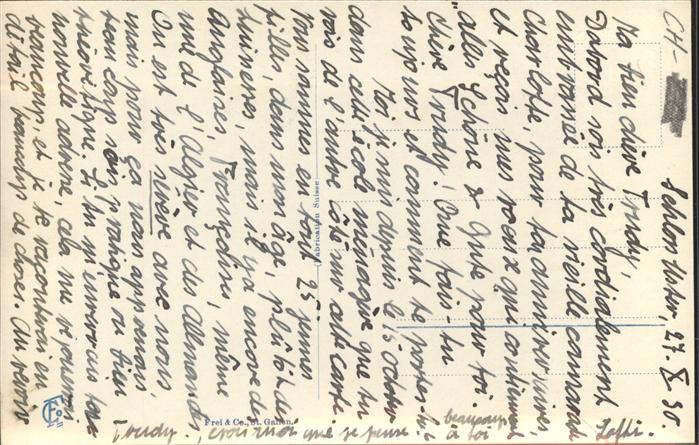 CH-
Schloss Uster, 27. X 30.
Ma bien chère Trudy,
D'abord sois très cordialement
embrassée de ta vieille camarade
Charlotte, pour ton anniversaire,
et reçois mes vœux qui contiennent
"alles Schöne & Gute für toi.
Chère Trudy! Que fais-tu
toujours et comment te portes-tu?
Moi je suis depuis le 15 octobre
dans cette école ménagère que tu
vois de l'autre côté sur cette carte.
Nous sommes en tout 25 jeunes
filles, dans mon âge, plutôt des
Suissesses, mais il y a encore des
Anglaises, Françaises, même
une de l'Algier et des Allemandes.
On est très sévère avec nous
mais pour ça nous apprenons
beaucoup soin pratique ou bien
théorétique. Si tu m'envoyais ta
nouvelle adresse, cela me réjouirait
beaucoup, et je te raconterais en
détail beaucoup de choses. Au revoir
Trudy., crois moi que je pense beaucoup à toi Lotti.
Fabrication Suisse
Frei & Co., St. Gallen.